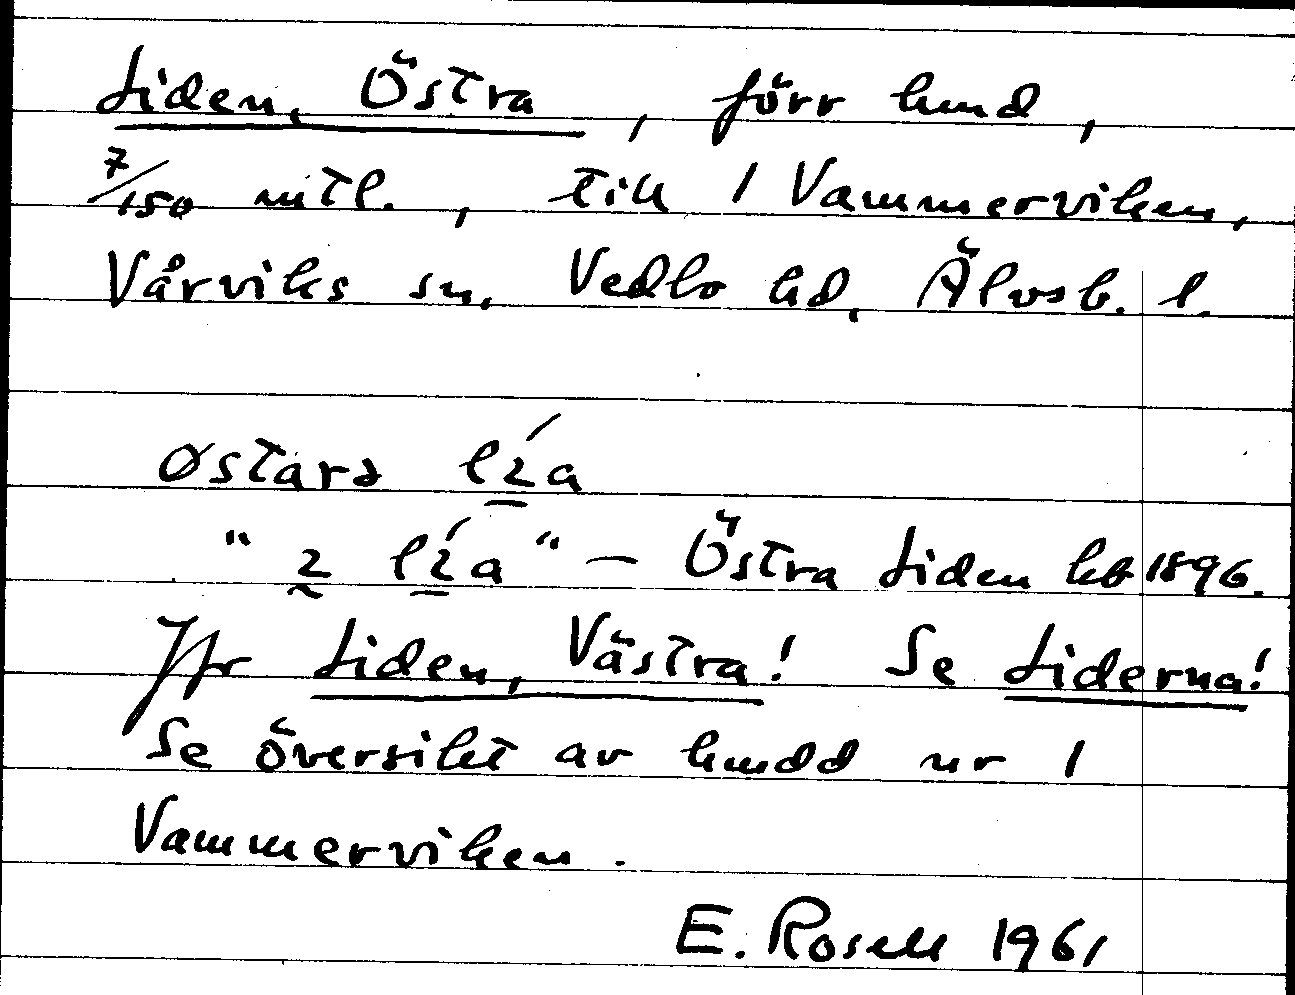 Liden, Östra, förr hmd,
7/150 mtl., till 1 Vammerviken,
Vårviks sn, Vedbo hd, Älvsb. l.
østarə lıa
" ı lıa" – Östra Liden hb 1896.
Jfr Liden, Västra! Se Liderna!
Se översikt av hmdd nr 1
Vammerviken.
E. Rosell 1961